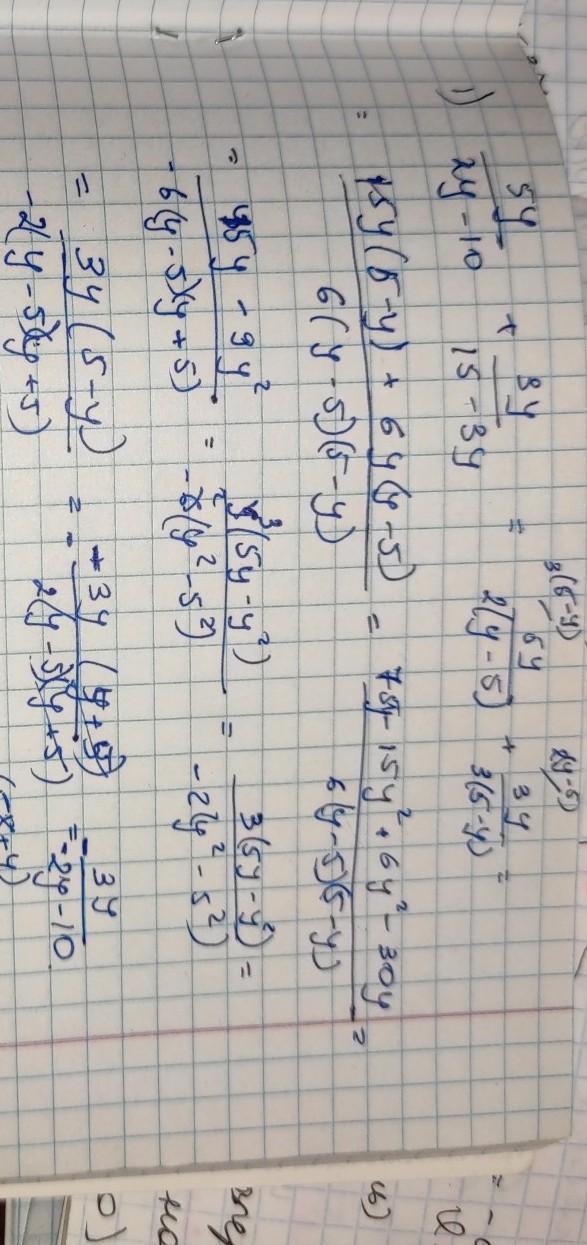 1) 5y/(2y-10) + 3y/(15-3y) = 5y/(2(y-5)) + 3y/(3(5-y)) =
3(5-y) 2(y-5)
= (15y(5-y) + 6y(y-5))/(6(y-5)(5-y)) = (75y-15y²+6y²-30y)/(6(y-5)(5-y)) =
= (45y-9y²)/(-6(y-5)(y+5)) = (3(5y-y²))/(-6(y²-5²)) = (3(5y-y²))/(-2(y²-5²)) =
= (3y(5-y))/(-2(y-5)(y+5)) = - (3y(y+5))/(2(y-5)(y+5)) = - 3y/(2y-10)